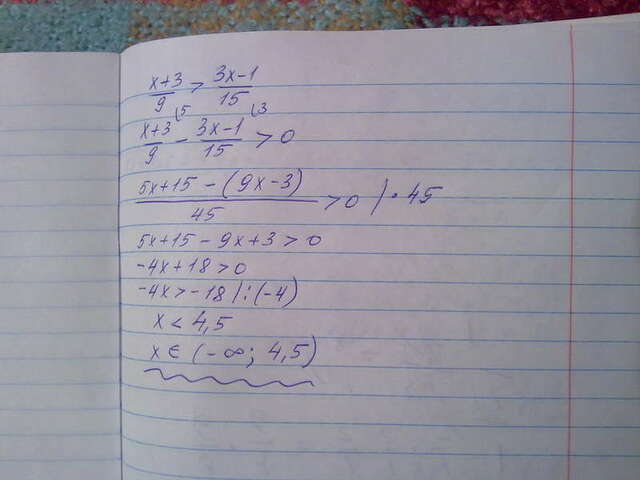 x+3/9 > 3x-1/15
x+3/9 \5 - 3x-1/15 \3 > 0
5x+15-(9x-3)/45 > 0 | · 45
5x+15-9x+3>0
-4x+18>0
-4x>-18 | : (-4)
x < 4,5
x ∈ (-∞; 4,5)